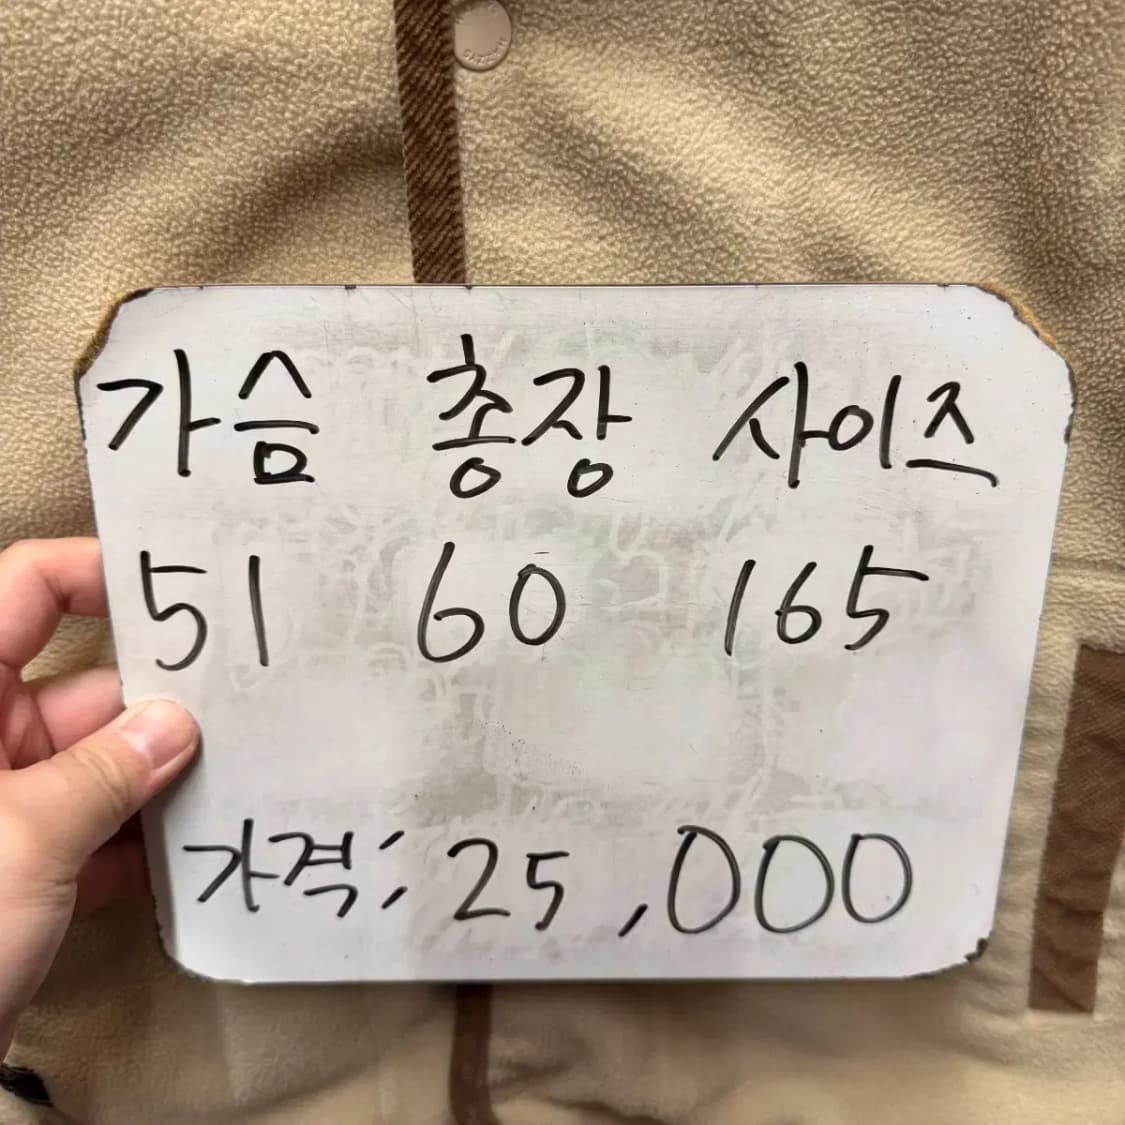 가슴 총장 사이즈
51 60 165
가격: 25,000